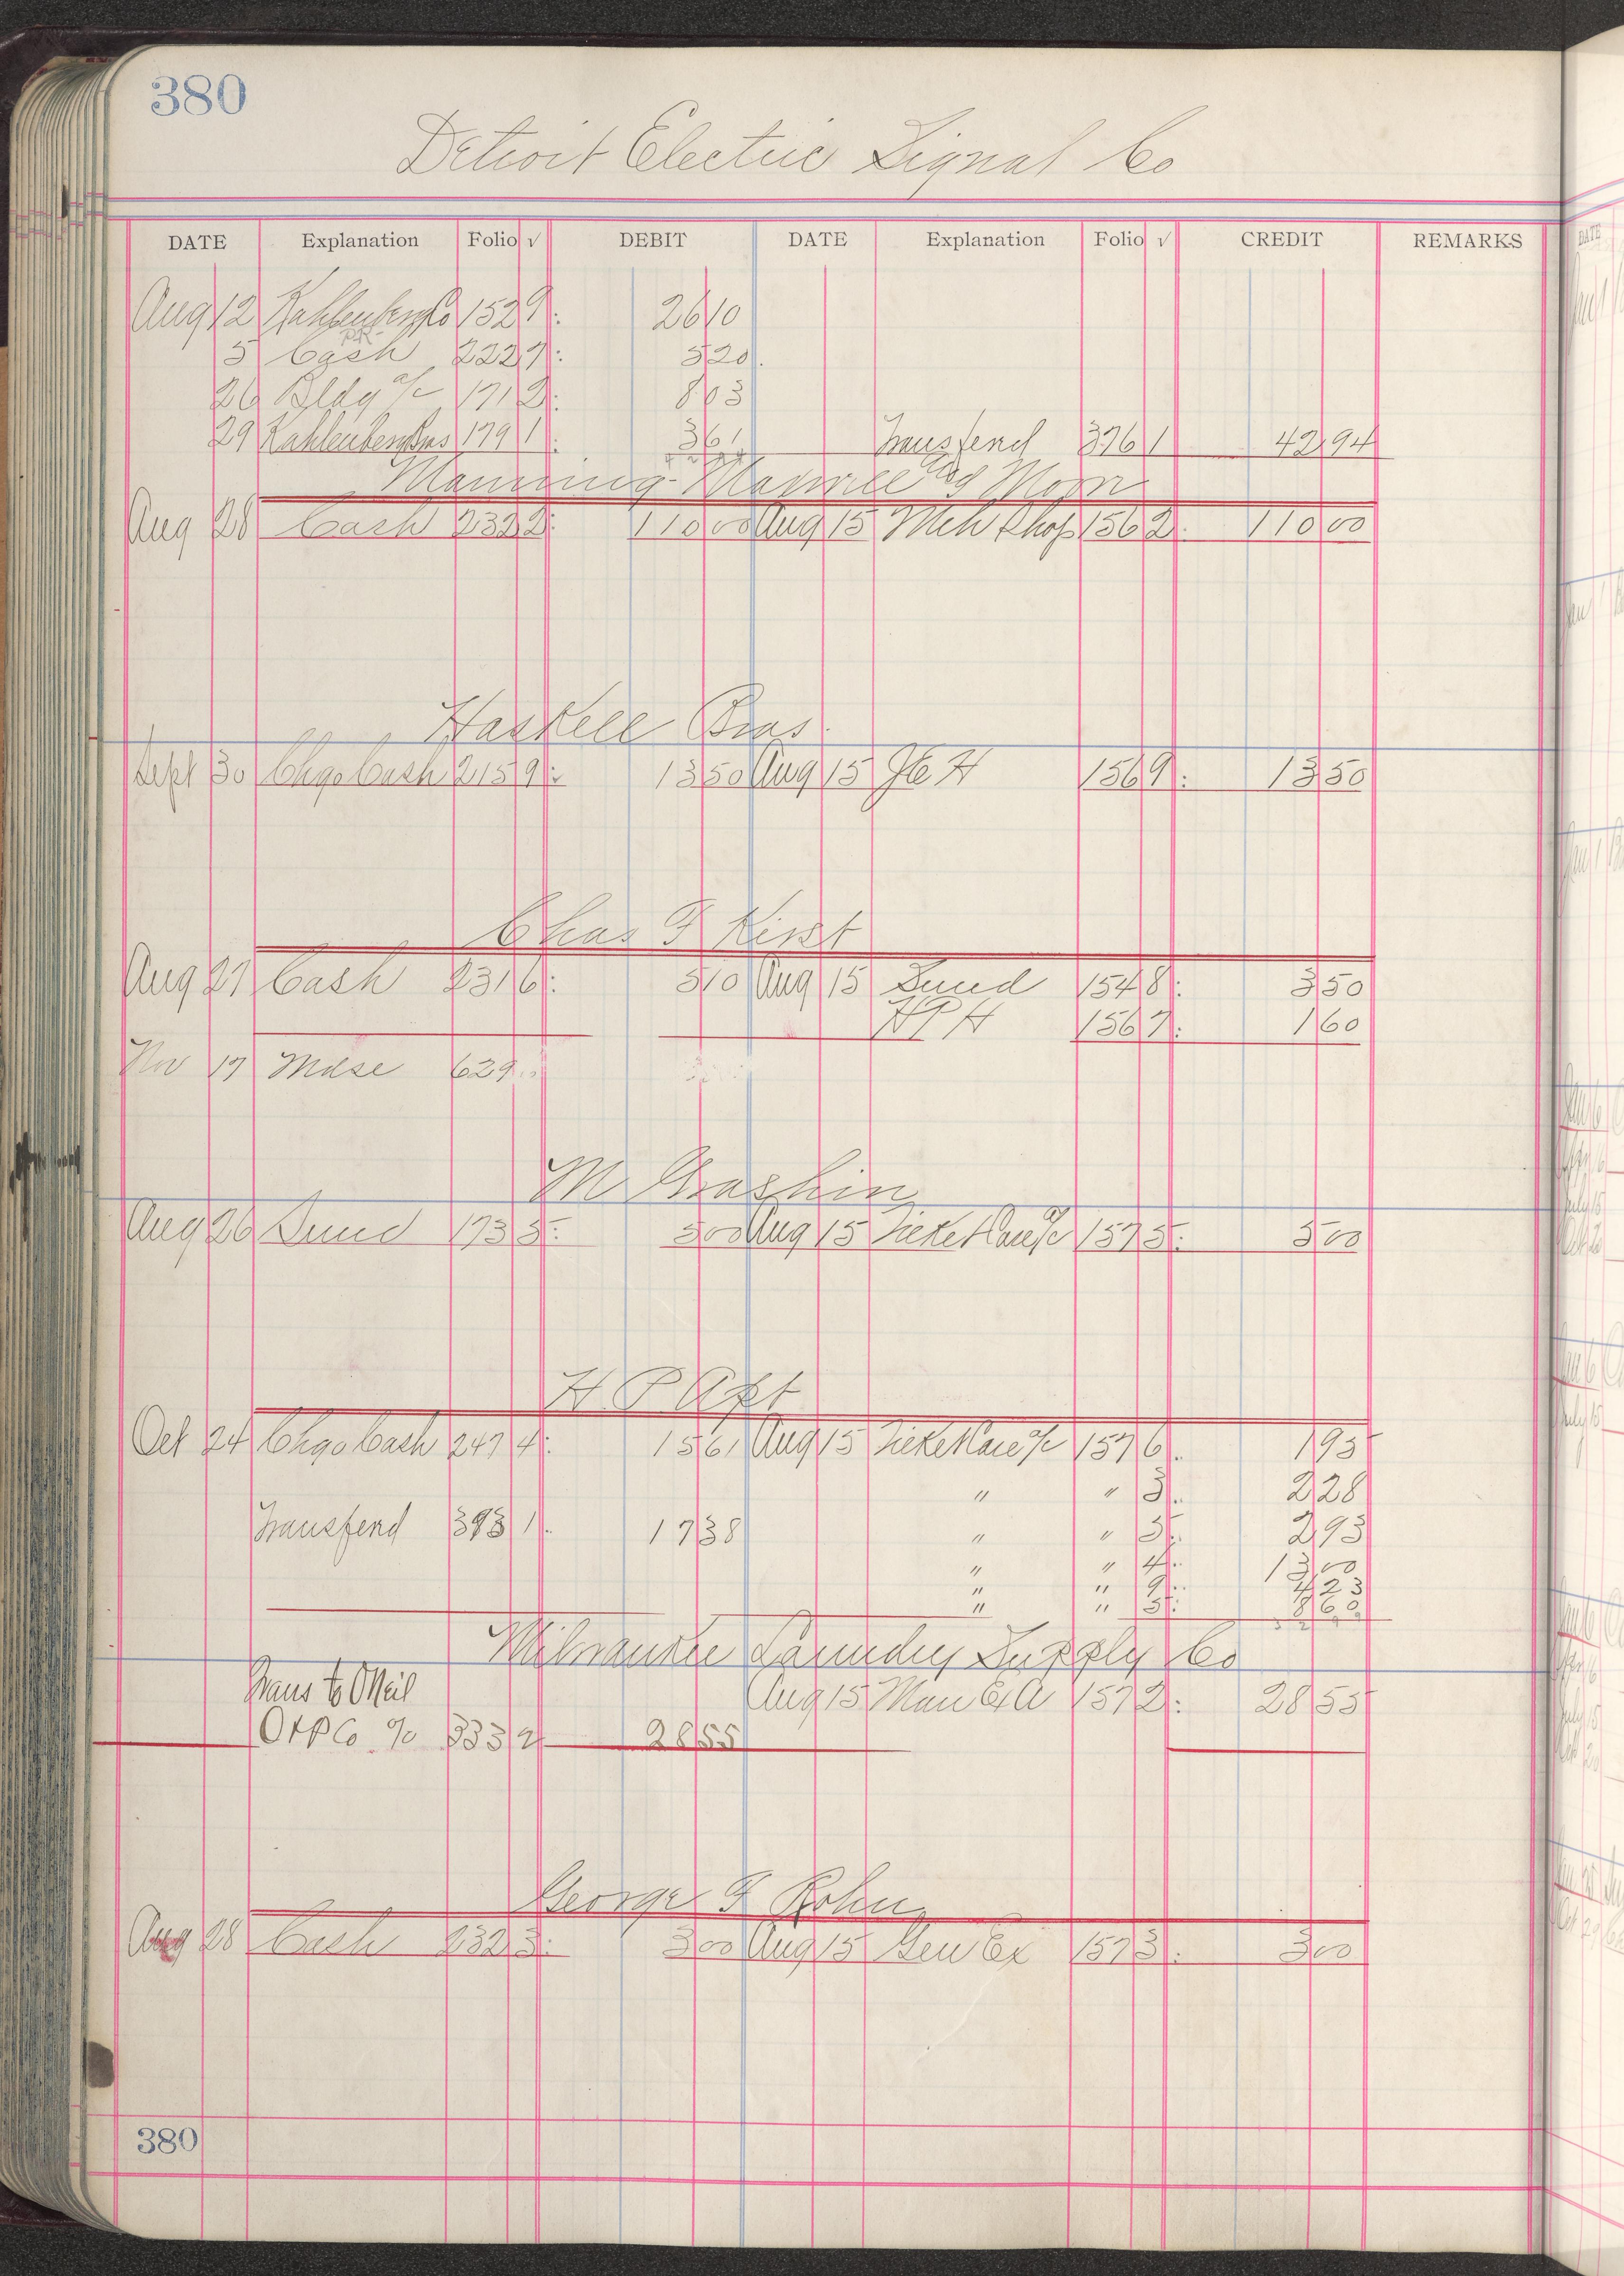 380
Detroit Electric Signal Co
DATE Explanation Folio √ DEBIT DATE Explanation Folio √ CREDIT REMARKS
Aug 12 Kahlenberg Co 152 9 26 10
PR
5 Cash 222 7 5 20
26 Bldg a/c 171 2 8 03
29 Kahlenberg Bros 179 1 3 61 Transferd 376 1 42 94
Manning Maxwell and Moore
Aug 28 Cash 232 2 110 00 Aug 15 Mch Shop 156 2 110 00
Haskell Bros.
Sept 30 Chgo Cash 215 9 13 50 Aug 15 J E H 156 9 13 50
Chas F Kirst
Aug 27 Cash 231 6 5 10 Aug 15 Sund 154 8 3 50
H P H 156 7 1 60
Nov 17 Mdse 629
M Grashin
Aug 26 Sund 173 5 5 00 Aug 15 Ticket Care a/c 157 5 5 00
H P Apt
Oct 24 Chgo Cash 247 4 15 61 Aug 15 Ticket Care a/c 157 6 1 95
" " 3 2 28
Transferd 393 1 17 38 " " 5 2 93
" " 4 13 00
" " 9 4 23
" " 5 8 60
Milwaukee Laundry Supply Co
Trans to ONeil Aug 15 Man Ex A 157 2 28 55
O & P Co a/c 333 2 28 55
George F Rohn
Aug 28 Cash 232 3 3 00 Aug 15 Gen Ex 157 3 3 00
380